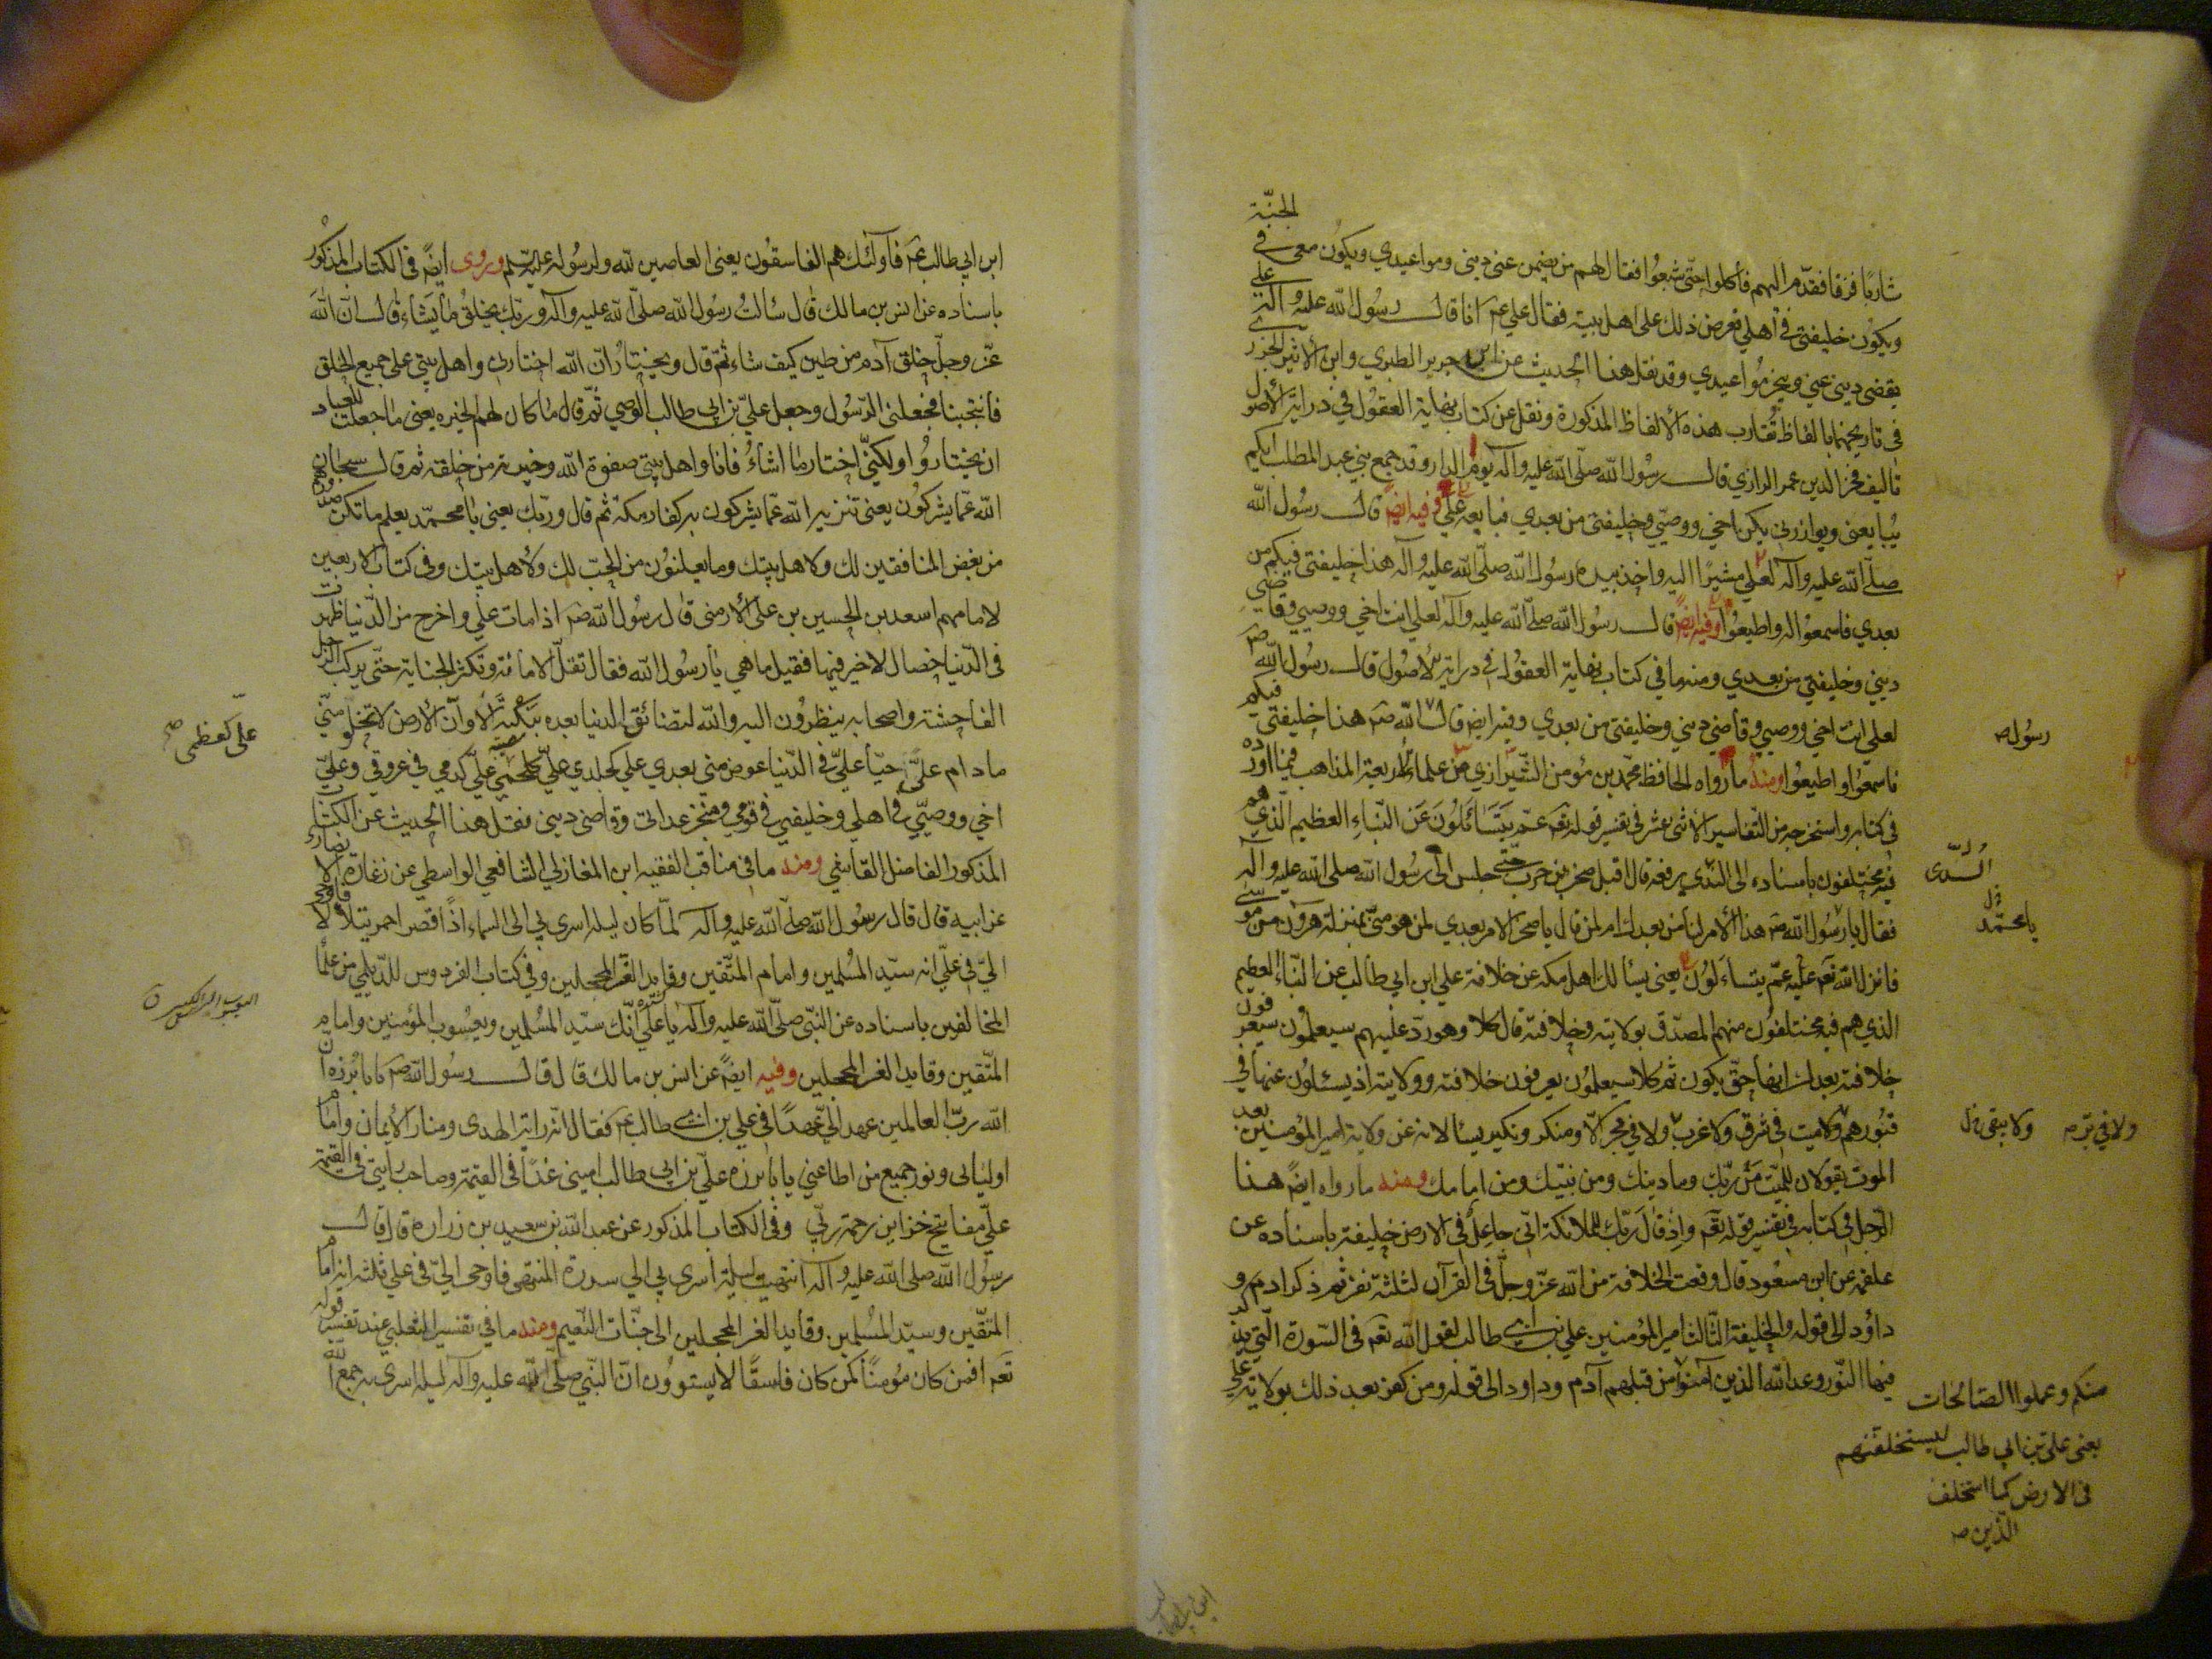 الجنّة
شاربًا فرقا فقدّمه اليهم فأكلوا حتّى شبعُوا فقال لهم من يضمن عنى دينى ومواعيدي ويكون معى فى
ويكون خليفتى فى أهلي فعرض ذلك على اهل بيته فقال علي عم انا قال رسول الله عليه وآله علي
يقضى دينى عنى وينجز مواعيدي وقد نقل هذا الحديث عن ابن جرير الطبري وابن الأثير الجزري
فى تاريخهما بالفاظ تُقارب هذه الألفاظ المذكورة ونقل عن كتاب نهاية العقول في دراية الأصول
تأليف فخر الدين عمر الرازي قال رسول الله صلّى الله عليه وآله يوم الدار وقد جمع بني عبد المطلب ايكم
يُبايعنى ويوازرنى يكن اخي ووصيي وخليفتى من بعدي فبايعه علي وفيه ايضً قال رسول الله
صلّى الله عليه وآله لعلي مشيرًا اليه واخذ بيده رسول الله صلّى الله عليه وآله هذا خليفتى فيكم من
بعدي فاسمعوا له واطيعُوا وفيه ايضً قال رسول الله صلّى الله عليه وآله لعلي انت اخي ووصيي وقاضى
ديني وخليفتي من بعدي ومنه ما فى كتاب نهاية العقول في دراية الأصُول قال رسول الله صم
لعلي انت اخي ووصيي وقاضي ديني وخليفتى من بعدي وفيه ايضً قال الله صم هذا خليفتي فيكم
رسول ص
فاسمعُوا واطيعُوا ومنه ما رواه الحافظ محمّد بن مؤمن الشّيرازي من علماء الأربعة المذاهب فيما اورده
فى كتابه واستخرجه من التفاسير الأثنى عشر فى تفسير قوله تعم عمّ يتساءلون عن النباء العظيم الّذي هم
فيه مختلفون باسناده الى السّدي يرفعه قال اقبل صخر بن حرب حتّى جلس الى رسول الله صلى الله عليه وآله
السّدى
فقال يا رسول الله صم هذا الأمر لنا من بعدك ام لمن قال يا صخر الامر بعدي لمن هو منّى بمنزلة هرون من موسى
يا محمّد
فانزل الله تعم عليه عمّ يتساءلون يعنى يسألك اهل مكة عن خلافة علي ابن ابي طالب عن النّباء العظيم
الذي هم فيه مختلفون منهم المصدّق بولايته وخلافته قال كلا وهو ردّ عليهم سيعلمُون سيعرفون
خلافته بعدك انها حقّ يكون ثم كلا سيعلمُون يعرفون خلافته وولايته اذ يسئلون عنها في
قبُورهم ولا ميت فى شرق ولا غرب ولا في بحر الّا ومنكر ونكير يسألانه عن ولاية امير المؤمنين بعد
ولا في بر م ولا يبقى
الموت يقولان للميّت مَن ربّك وما دينك ومن نبيّك ومن امامك ومنه ما رواه ايضً هذا
الرّجل فى كتابه فى تفسير قوله تعم واذ قال ربّك للملائكة انّي جاعل فى الارض خليفة باسناده عن
علقمة عن ابن مسعُود قال وقعت الخلافة من الله عزّ وجلّ فى القرآن لثلثة نفر ثم ذكر ادم و
داوُد الى قوله والخليفة الثالث امير المؤمنين علي بن ابي طالب لقول الله تعم فى السّورة الّتي يذكر
فيها النّور وعد الله الذين آمنوا من قبلهم آدم وداود الى قوله ومن كفر بعد ذلك بولاية علي
منكم وعملوا الصّالحات
يعنى على بن ابي طالب ليستخلفنهم
فى الارض كما استخلف
الّذين ص
ابن ابي طالب
ابن ابي طالب عم فأولئك هم الفاسقُون يعنى العاصين لله ولرسُوله عليه السلم وروى ايضً فى الكتاب المذكور
باسناده عن انس بن مالك قال سألتُ رسول الله صلّى الله عليه وآله وربّك يخلقُ ما يشاء قال انّ الله
عزّ وجلّ خلق آدم من طين كيف شاء ثمّ قال ويختارُ انّ الله اختارنى واهل بيتي على جميع الخلق
فأنتجبنا فجعلنى الرّسُول وجعل عليّ بن ابى طالب الوصي ثمّ قال ما كان لهم الخيره يعنى ما جعلت للعباد
ان يختارُوا ولكنّى اختار ما اشاءُ فانا واهل بيتي صفوة الله وخيرته من خلقه ثم قال سبحان
الله عمّا يشركُون يعنى تنزيه الله عمّا يشركون به كفار مكة ثم قال وربّك يعنى يا محمّد يعلم ما تكن صدورهم
من بغض المنافقين لك ولاهل بيتك وما يعلنُون من الحبّ لك ولأهل بيتك وفى كتاب الاربعين
لامامهم اسعد بن الحسين بن على الأرمنى قال رسُول الله صم اذا مات علي واخرج من الدّنيا ظهرت
فى الدّنيا خصال لا خير فيها فقيل ما هي يا رسُول الله فقال تقلّ الأمانة وتكثر الخيانة حتّى يركب الرّجل
الفاحشة واصحابه ينظرُون اليه والله لتضائق الدنيا بعده بنكبة ألا وانّ الأرض لا تخلو منّي
ما دام عليّ حيّا عليّ فى الدّنيا عوض منّي بعدي علي كجلدي عليّ كلحمي عليّ كدمي في عروقي وعليّ
علىّ كعظمى ص
اخي ووصيّي فى اهلي وخليفتي في قومي ومنجز عداتى وقاضى دينى نقل هذا الحديث عن الكتاب
المذكور الفاضل القاشي ومنه ما فى مناقب الفقيه ابن المغازلي الشافعي الواسطي عن زغارة الانصارى
عن ابيه قال قال رسُول الله صلّى الله عليه وآله لمّا كان ليلة اسرى بي الى السماء اذًا قصر احمر يتلألأ فأوحى
اليّ فى عليّ انه سيّد المُسلمين وامام المتّقين وقايد الغرّ المحجلين وفى كتاب الفردوس للدّيلمي من علماء
المخالفين باسناده عن النّبي صلّى الله عليه وآله يا علي انّك سيّد المُسلمين ويعسُوب المؤمنين وامام
المتّقين وقايد الغر المحجلين وفيه ايضً عن انس بن مالك قال قال رسول الله صم يا با بُرزه انّ
الله ربّ العالمين عهد اليّ عهدًا فى علي بن ابي طالب عم فقال انّه راية الهدى ومنار الأيمان وامام
اوليائى ونور جميع من اطاعني يا با برزه عليّ بن ابى طالب اميني غدًا فى القيمة وصاحب رأيتي فى القيمة
عليّ مفاتيح خزاين رحمة ربّي وفى الكتاب المذكور عن عبد الله بن سعيد بن زراره قال قال
رسول الله صلى الله عليه وآله انتهيت ليلة أسرى بي الى سدرة المنتهى فاوحى اليّ فى علي ثلثه انه امام
المتّقين وسيّد المُسلمين وقايد الغر المحجلين الى جنّات النّعيم ومنه ما فى تفسير الثعلبي عند تفسير قوله
تعم افمن كان مؤمنًا كمن كان فاسقًا لا يستوُون انّ النّبي صلّى الله عليه وآله ليلة اسرى به جمع الله